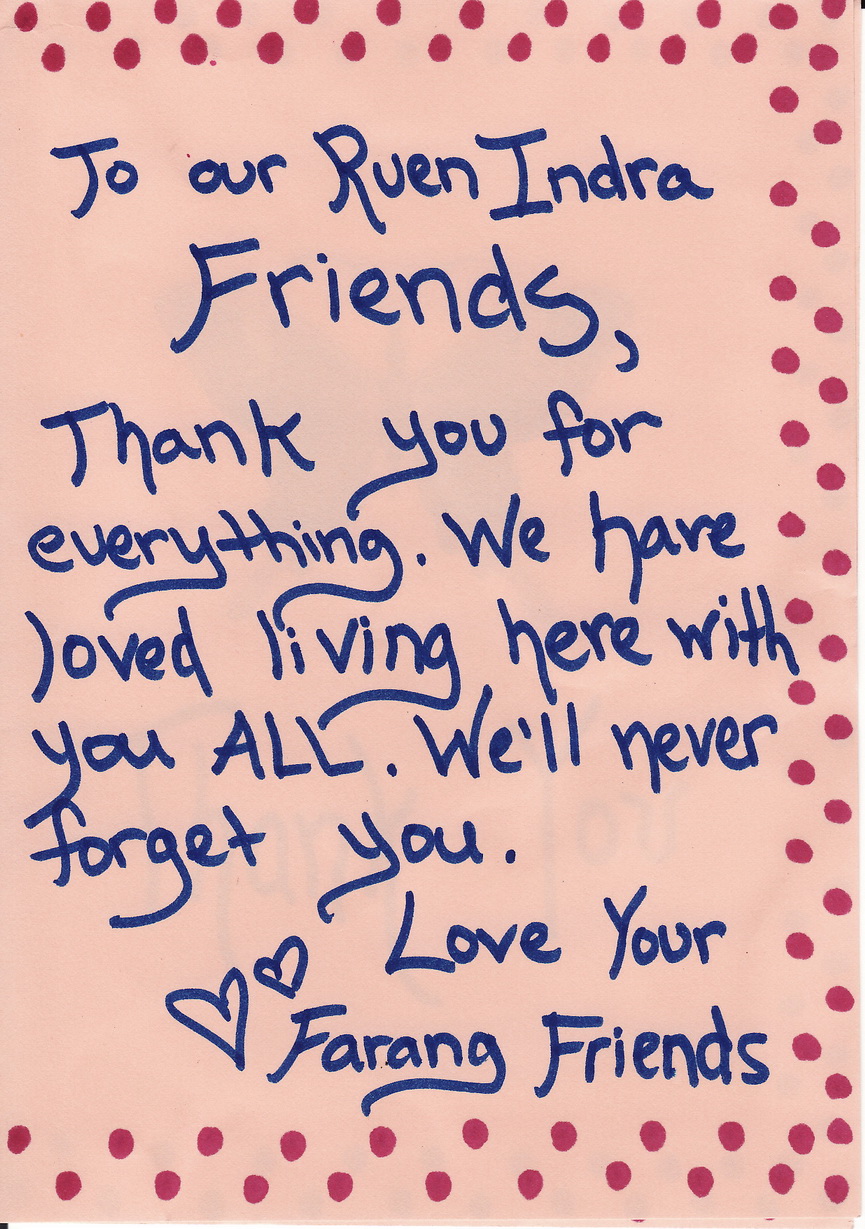 To our Ruen Indra
Friends,
Thank you for
everything. We have
loved living here with
you ALL. We'll never
forget you.
Love Your
Farang Friends